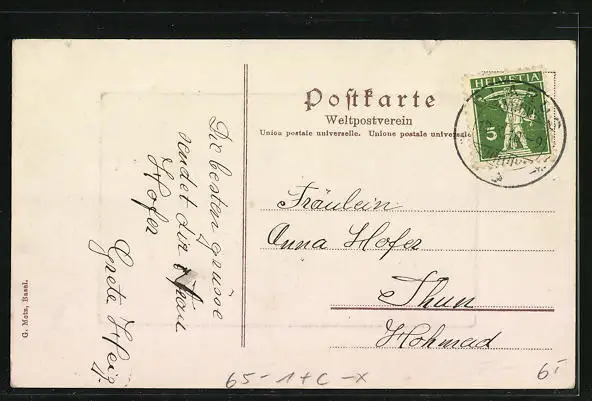 Postkarte
Weltpostverein
Union postale universelle. Unione postale universale
HELVETIA
5
Die besten grüsse
sendet dir
Hofer
Grete
Fräulein
Anna Hofer
Thun
Hohmad
G. Metz, Basel.
65-1+C-X
6.-